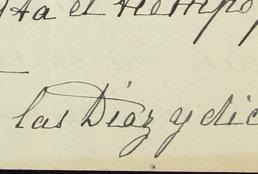 ta el tiempo
las Díaz y dic